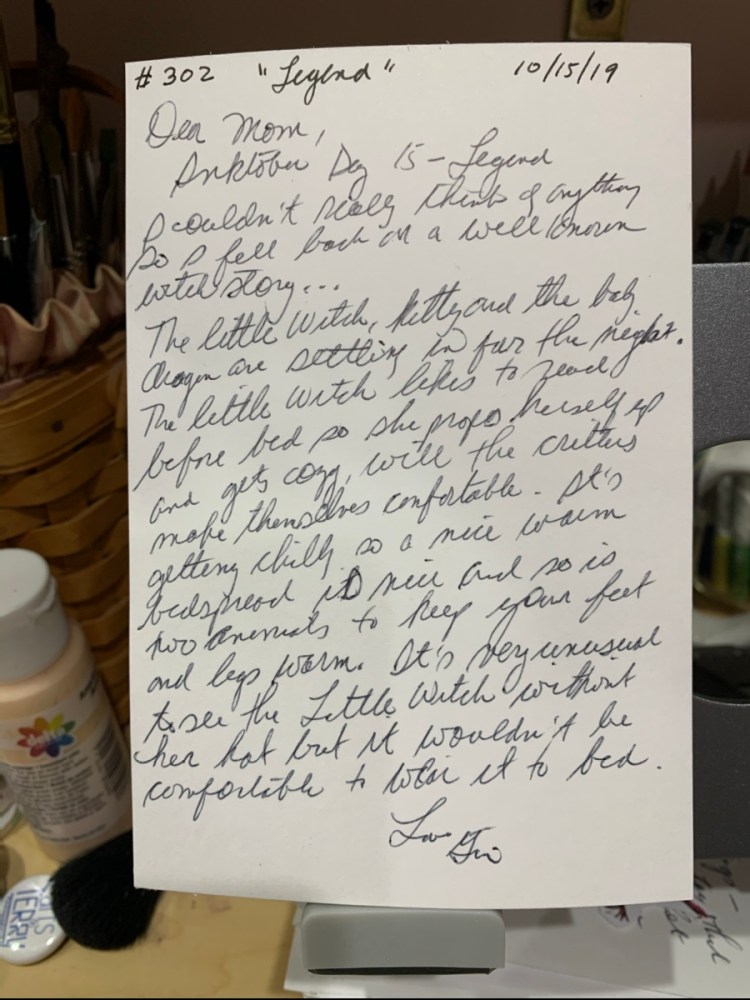 #302 "Legend" 10/15/19
Dear Mom,
Inktober Day 15 - Legend
I couldn't really think of anything
so I fell back on a well known
witch story...
The little Witch, Kitty and the baby
dragon are settling in for the night.
The little Witch likes to read
before bed so she props herself up
and gets cozy, will the critters
make themselves comfortable. It's
getting chilly so a nice warm
bedspread is nice and so is
two animals to keep your feet
and legs warm. It's very unusual
to see the Little Witch without
her hat but it wouldn't be
comfortable to wear it to bed.
Love